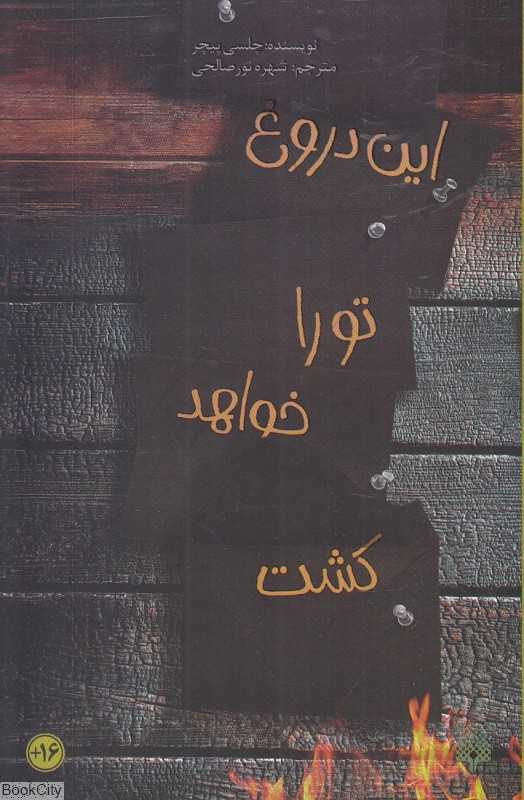 نویسنده: چلسی پیچر
مترجم: شهره نورصالحی
این دروغ
تو را
خواهد
کشت
+۱۶
BookCity